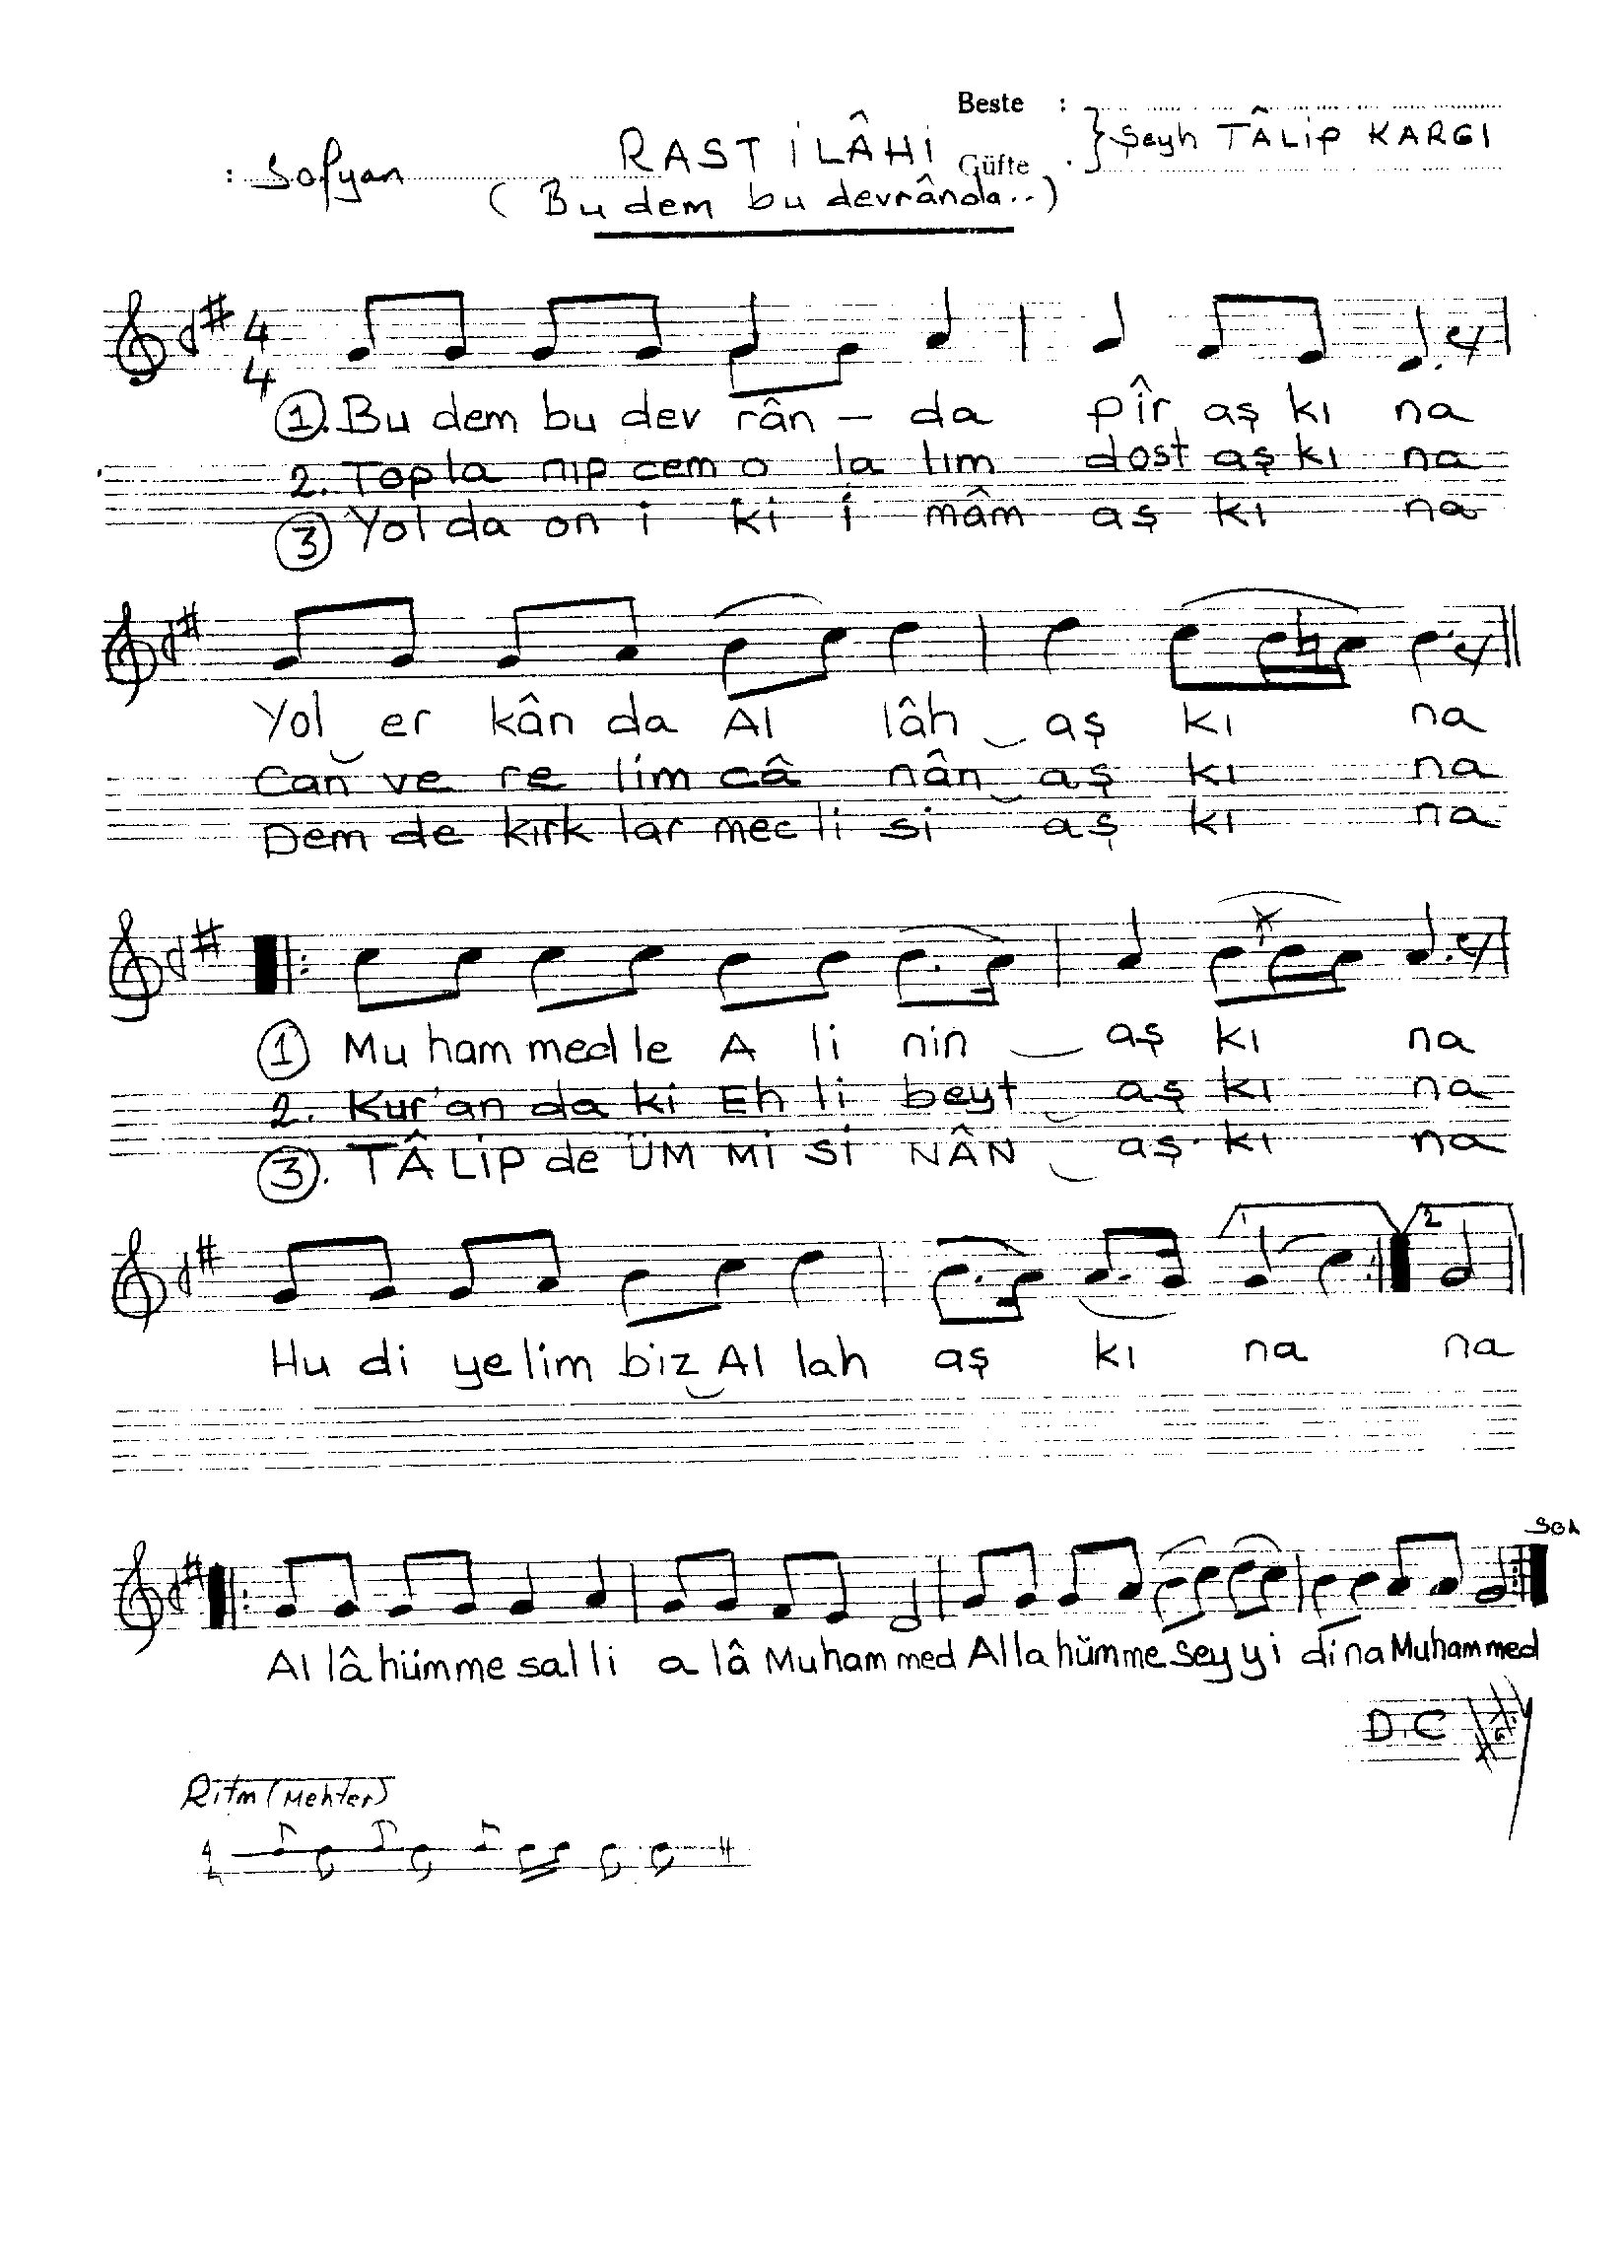 Beste :
: Sofyan RAST İLÂHİ Güfte : } Şeyh TÂLİP KARGI
( Bu dem bu devrânda.. )
4
4
1. Bu dem bu dev rân – da pîr aş kı na
2. Topla nıp cem o la lım dost aş kı na
3 Yol da on i ki i mâm aş kı na
Yol er kân da Al lâh aş kı na
Can ve re lim câ nân aş kı na
Dem de kırk lar mec li si aş kı na
1 Mu ham med le A li nin aş kı na
2. Kur'an da ki Eh li beyt aş kı na
3. TÂ LİP de ÜM Mİ Sİ NÂN aş kı na
1 2
Hu di ye lim biz Al lah aş kı na na
Son
Al lâ hüm me sal li a lâ Mu ham med Al la hüm me sey yi di na Muhammed
D.C
Ritm (Mehter)
4
4